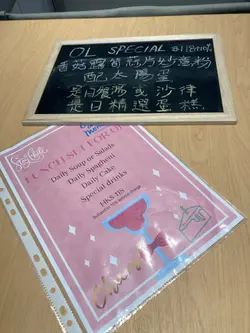 OL SPECIAL $118+10%
香菇露筍蒜片炒意粉
配太陽蛋
是日湯或沙律
是日精選蛋糕
LUNCH SET FOR
Daily Soup or Salads
Daily Spaghetti
Daily Cake
Special drinks
HK$ 118